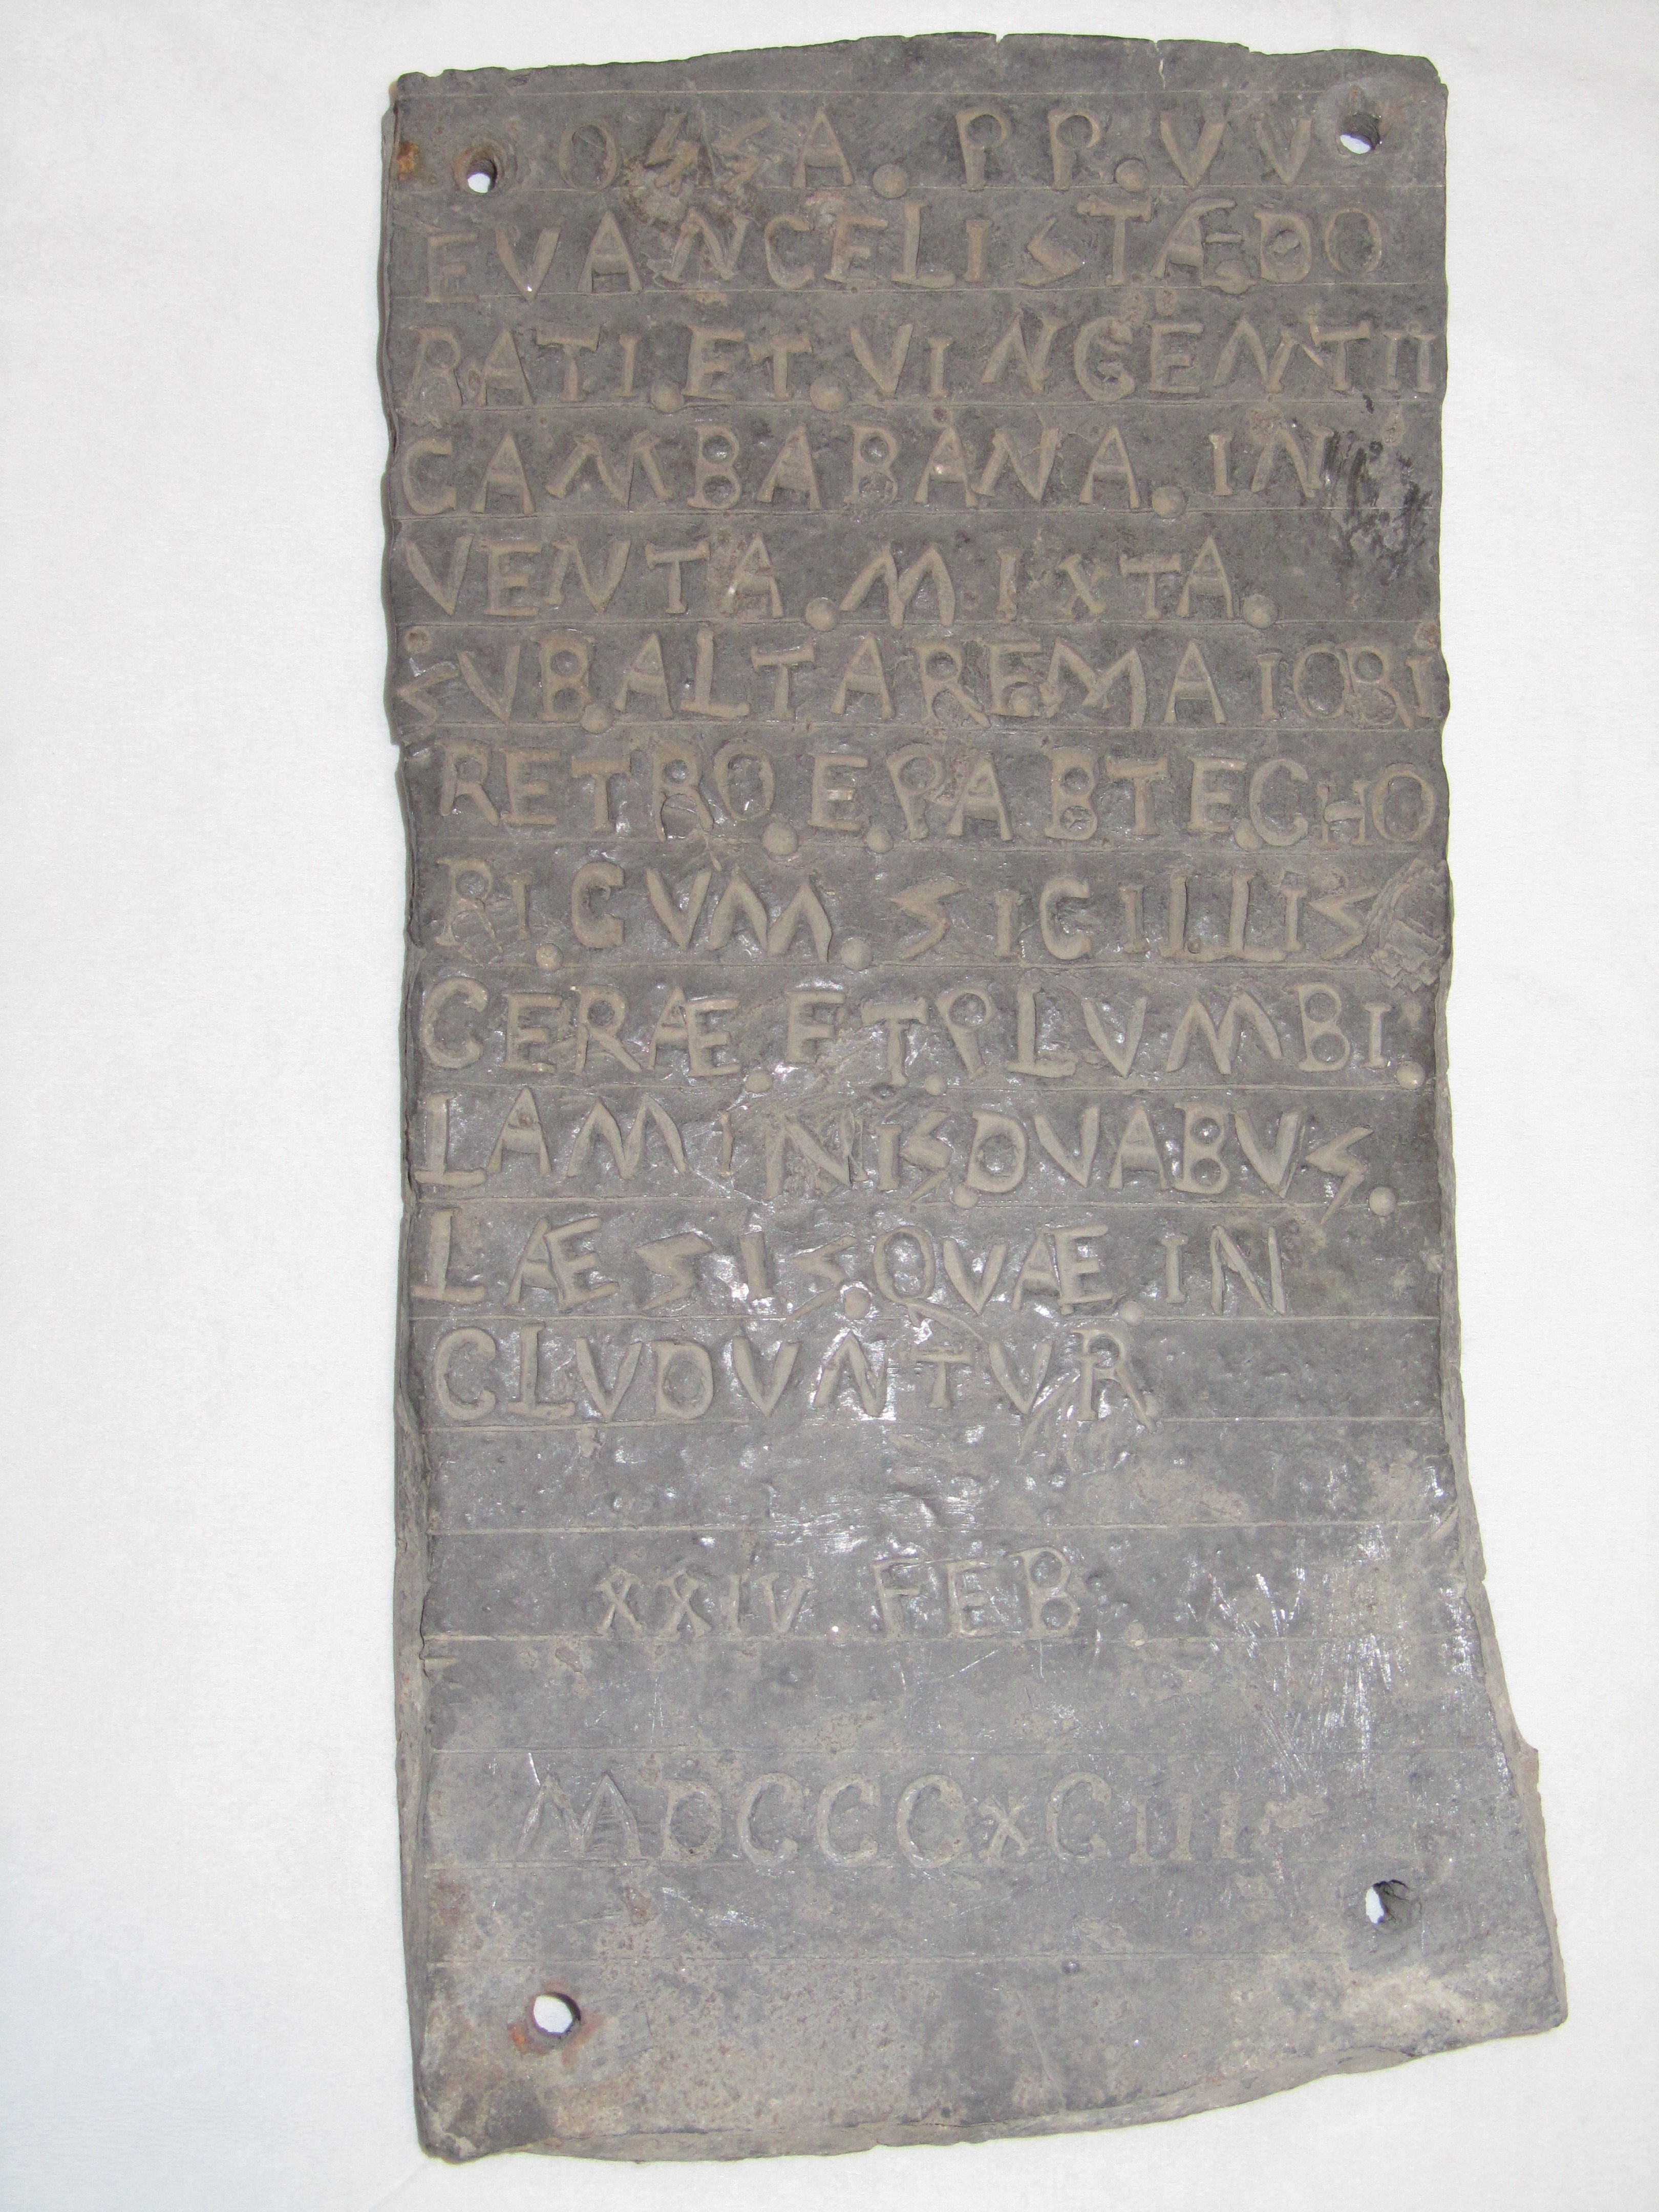 OSSA. PP. VV
EVANGELISTÆ DO
RATI. ET. VINCENTII
CAMBABANA. IN
VENTA. MIXTA.
SVB. ALTARE MAIORI
RETRO. E. PARTE. CHO
RI. CVM. SIGILLIS
CERÆ. ET. PLVMBI.
LAMINIS. DVABUS.
LÆSIS. QVÆ. IN
CLVDVNTVR
XXIV. FEB
MDCCCXCIII